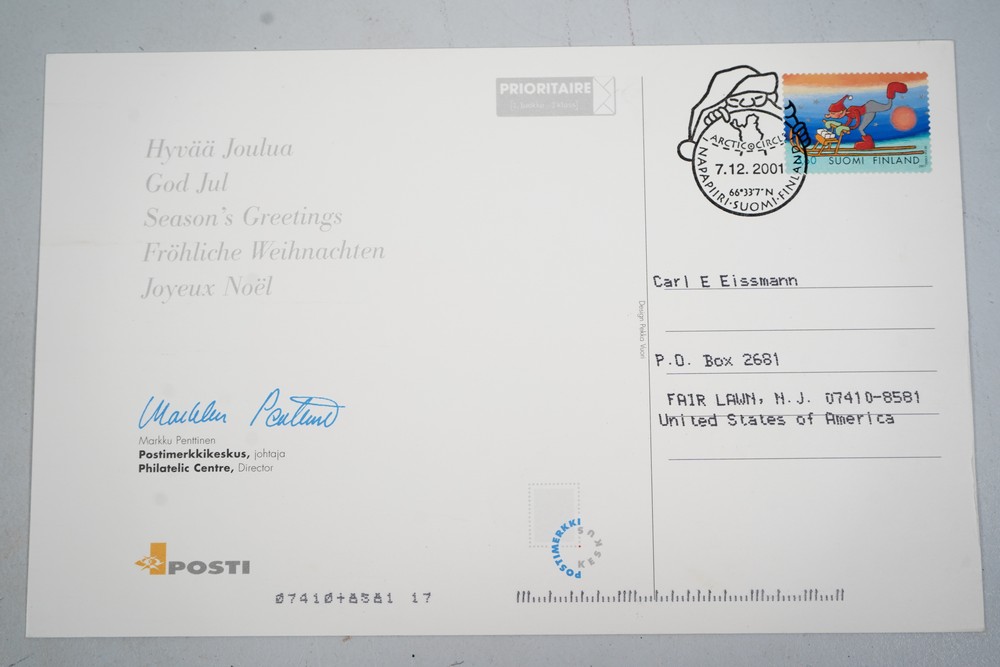 PRIORITAIRE
Hyvää Joulua
God Jul
Season's Greetings
Fröhliche Weihnachten
Joyeux Noël
Markku Penttinen
Markku Penttinen
Postimerkkikeskus, johtaja
Philatelic Centre, Director
POSTI
07410+8581 17
POSTIMERKKI
KESKUS
Design Pekka Vuori
ARCTIC CIRCLE
7.12.2001
66°33'7"N
NAPAPIIRI·SUOMI·FINLAND
SUOMI FINLAND
Carl E Eissmann
P.O. Box 2681
FAIR LAWN, N.J. 07410-8581
United States of America